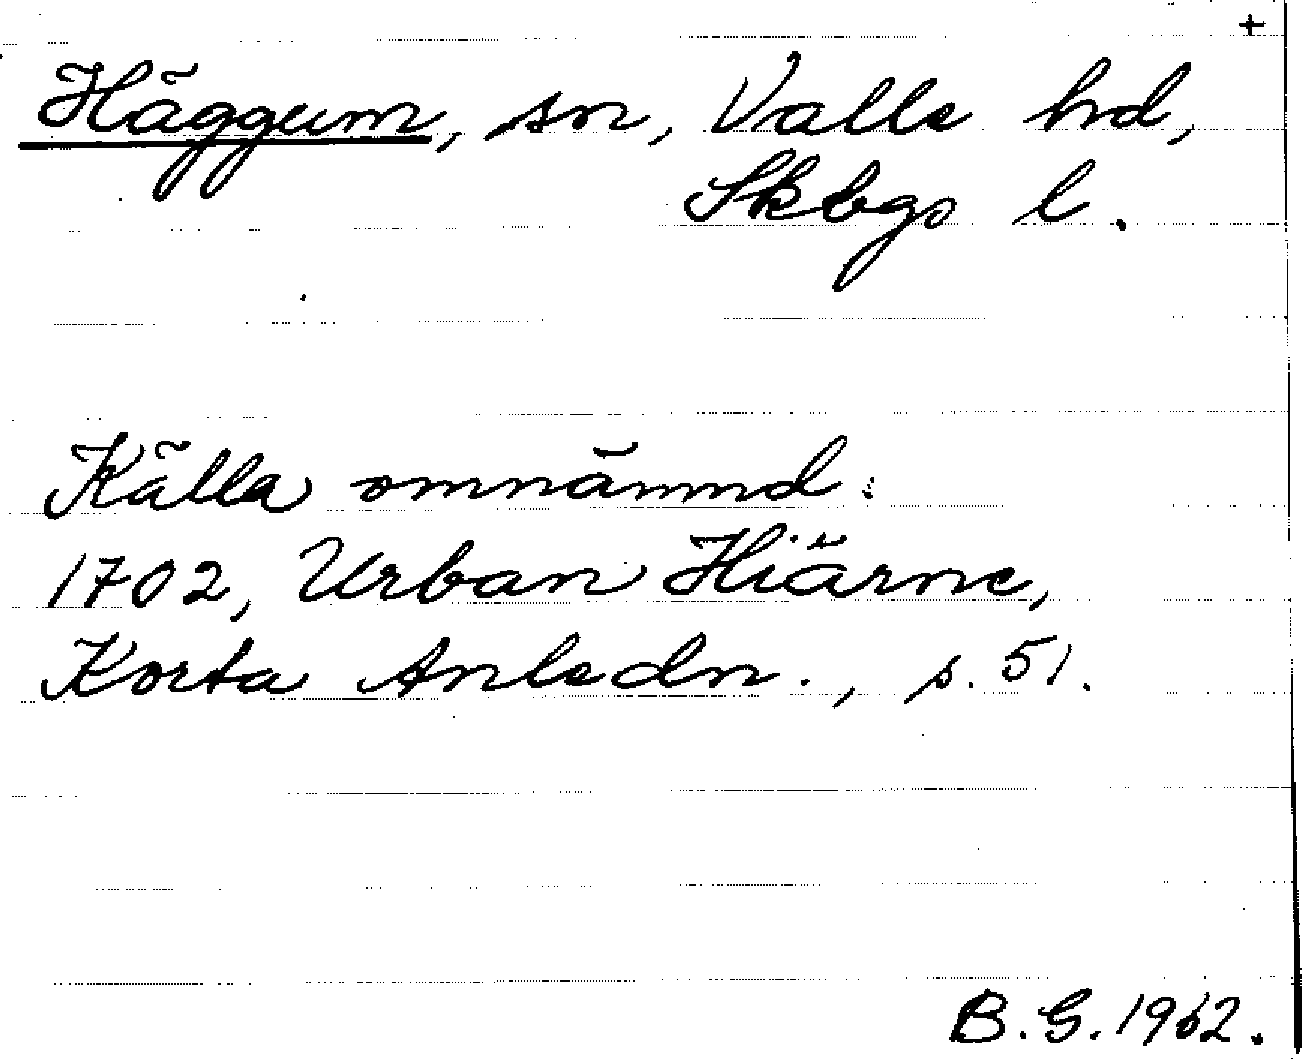 +
Häggum, sn, Valle hd,
Skbgs l.
Källa omnämnd:
1702, Urban Hiärne,
Korta Anledn., s. 51.
B.G. 1962.